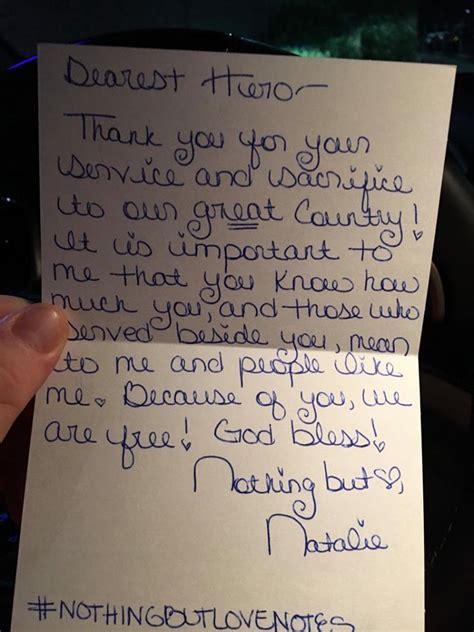 Dearest Hero-
Thank you for your
service and sacrifice
to our great Country!
It is important to
me that you know how
much you, and those who
served beside you, mean
to me and people like
me. Because of you, we
are free! God bless!
Nothing but ♡,
Natalie
#NOTHINGBUTLOVENOTES